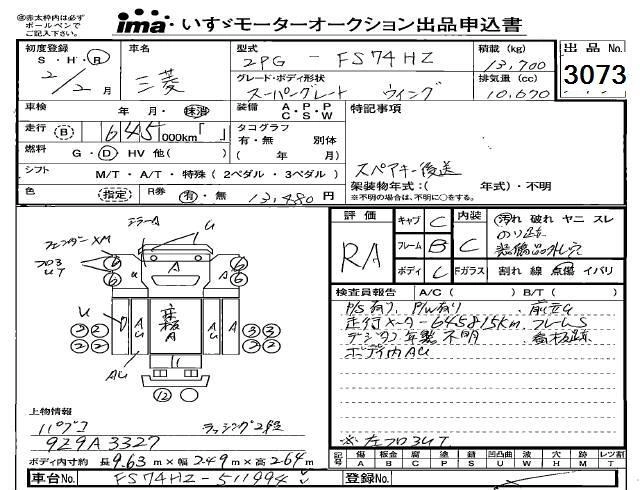 ※赤太枠内は必ずボールペンでご記入下さい。
ima いすゞモーターオークション出品申込書
初度登録 S・H・R 2/2月
車名 三菱
型式 2PG - FS74HZ
積載(kg) 13,700
出品No. 3073
グレード・ボディ形状 スーパーグレート ウイング
排気量(cc) 10,670
車検 年 月・抹消
装備 A・P・P C・S・W
特記事項
走行(B) 645,000km「 」
タコグラフ 有・無 別体 ( 年 月)
燃料 G・D HV 他( )
シフト M/T・A/T・特殊(2ペダル・3ペダル)
スペアキー後送
架装物年式:( 年式)・不明
※不明の場合は、不明に○をする。
色 (指定) R券 有・無 13,480円
評価 RA
キャブ C 内装 C
フレーム B
ボディ C Fガラス
汚れ 破れ ヤニ スレ
のり跡
装備品外し穴
割れ 線 点傷 イバリ
ミラーA U
フェンダーXM
フロ3 UT
6 6 6 6
A A A
U 2 2 2 2 A U A A U 3 3 2 2
床板A
AU
12
検査員報告 A/C( ) B/T( )
P/S有り、P/W有り、前立U
走行メーター645815km フレームS
デジタコ年製不明 看板跡
ボディ内AU
※左フロ3UT
上物情報
パブコ ラッシング2段
9Z9A3327
ボディ内寸約 長9.63m×幅2.49m×高2.64m
記号 傷 A 板金 B 腐 C 塗 P 錆 S 凹凸曲 U 波 W 穴 H 跡 M レツ割 T
車台No. FS74HZ-511994
登録No.